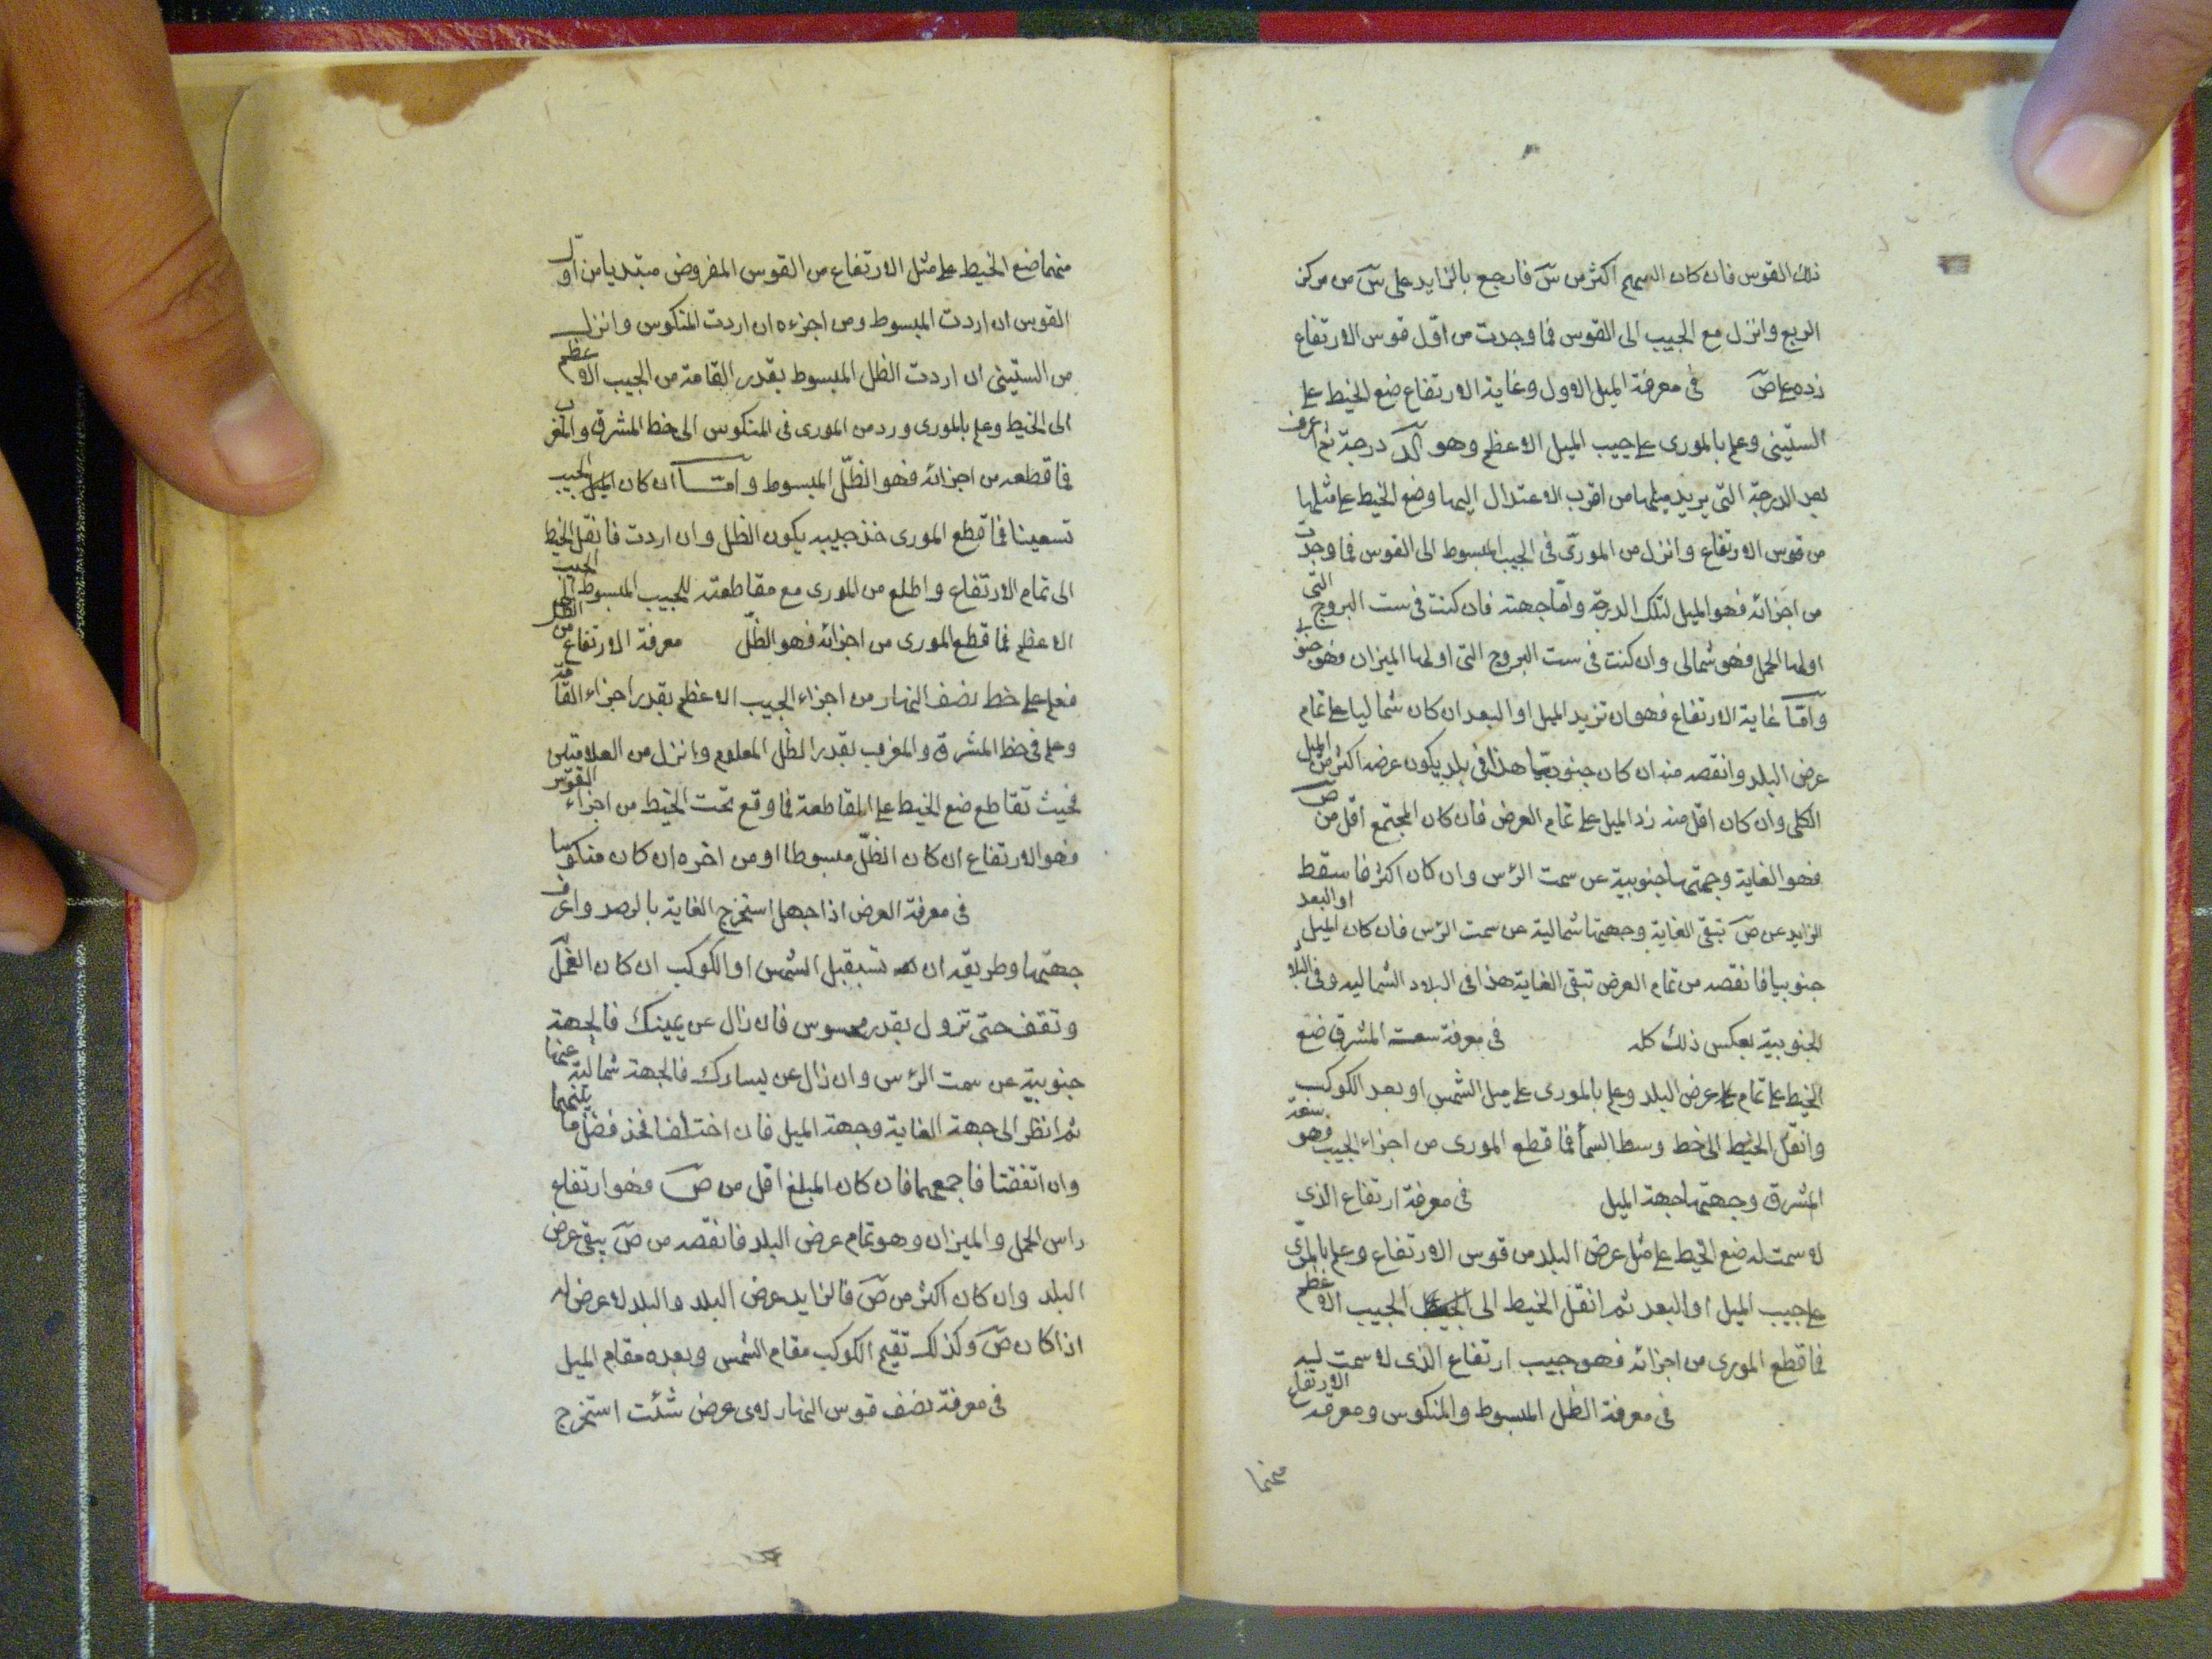 ذلك القوس فان كان السهم اكثر من سَ فارجع بالزايد على سَ من مركز
الربع وانزل مع الجيب الى القوس فما وجدت من اوّل قوس الارتفاع
زده على صَ في معرفة الميل الاول وغاية الارتفاع ضع الخيط على
الستيني وعلم بالموري على جيب الميل الاعظم وهو كَد درجة ثم اعرف
بعد الدرجة التي يريد ميلها من اقرب الاعتدال اليها وضع الخيط على مثلها
من قوس الارتفاع وانزل من الموري في الجيب المبسوط الى القوس فما وجدت
من اجزائه فهو الميل لتلك الدرجة وامّا جهته فان كنت في ست البروج التي
اولها الحمل فهو شمالى وان كنت في ست البروج التي اولها الميزان فهو جنوبي
وامّا غاية الارتفاع فهو ان تزيد الميل او البعد ان كان شماليا على تمام
عرض البلد وانقصه منه ان كان جنوبيّا هذا في بلد يكون عرضه اكثر من الميل
الكلى وان كان اقل منه زد الميل على تمام العرض فان كان المجتمع اقل من صَ
فهو الغاية وجهتها جنوبية عن سمت الرس وان كان اكثر فاسقط
الزايد عن صَ تبقى الغاية وجهتها شمالية عن سمت الرّس فان كان الميل او البعد
جنوبيا فانقصه من تمام العرض تبقى الغاية هذا في البلاد الشماليه وفي البلاد
الجنوبية بعكس ذلك كله في معرفة سعة المشرق ضع
الخيط على تمام عرض البلد وعلم بالموري على ميل الشمس او بعد الكوكب
وانقل الخيط الى خط وسط السمآ فما قطع الموري من اجزاء الجيب فهو سعة
المشرق وجهتها جهة الميل في معرفة ارتفاع الذى
لا سمت له ضع الخيط على مثل عرض البلد من قوس الارتفاع وعلم بالموري
على جيب الميل او البعد ثم انقل الخيط الى الجيب الاعظم
فما قطع الموري من اجزائه فهو جيب ارتفاع الذى لا سمت له
في معرفة الظل المبسوط والمنكوس ومعرفة الارتفاع
منهما
منهما ضع الخيط على مثل الارتفاع من القوس المفروض مبتديا من اوّل
القوس ان اردت المبسوط ومن اجزءه ان اردت المنكوس وانزل
من الستينى ان اردت الظل المبسوط بقدر القامة من الجيب الاعظم
الى الخيط وعلم بالمورى ورد من المورى في المنكوس الى خط المشرق والمغرب
فما قطعه من اجزائه فهو الظلّ المبسوط وامّا ان كان الجيب
تسعينا فما قطع المورى خذ جيبه يكون الظل وان اردت فانقل الخيط
الى تمام الارتفاع واطلع من المورى مع مقاطعته للجيب المبسوط الى الجيب
الاعظم فما قطع المورى من اجزائه فهو الظلّ معرفة الارتفاع من الظل
فعلم على خط نصف النهار من اجزاء الجيب الاعظم بقدر اجزاء القامة
وعلم في خط المشرق والمغرب بقدر الظل المعلوم وانزل من العلامتين
فحيث تقاطع ضع الخيط على المقاطعة فما وقع تحت الخيط من اجزاء القوس
فهو الارتفاع ان كان الظلّ مبسوطا او من اخره ان كان منكوسا
في معرفة العرض اذا جهل استخرج الغاية بالرصد واعرف
جهتها وطريقه ان تستقبل الشمس او الكوكب ان كان العمل
وتقف حتى تزول بقدر محسوس فان زال عن يمينك فالجهة
جنوبية عن سمت الرّس وان زال عن يسارك فالجهة شمالية عنها
ثم انظر الى جهة الغاية وجهة الميل فان اختلفا فخذ فضل ما بينهما
وان اتفقتا فاجمعهما فان كان المبلغ اقل من صَ فهو ارتفاع
راس الحمل والميزان وهو تمام عرض البلد فانقصه من صَ يبقى عرض
البلد وان كان اكثر من صَ فالزايد عرض البلد والبلد لا عرض له
اذا كان صَ وكذلك تقيم الكوكب مقام الشمس وبعده مقام الميل
في معرفة نصف قوس النهار لاى عرض شئت استخرج